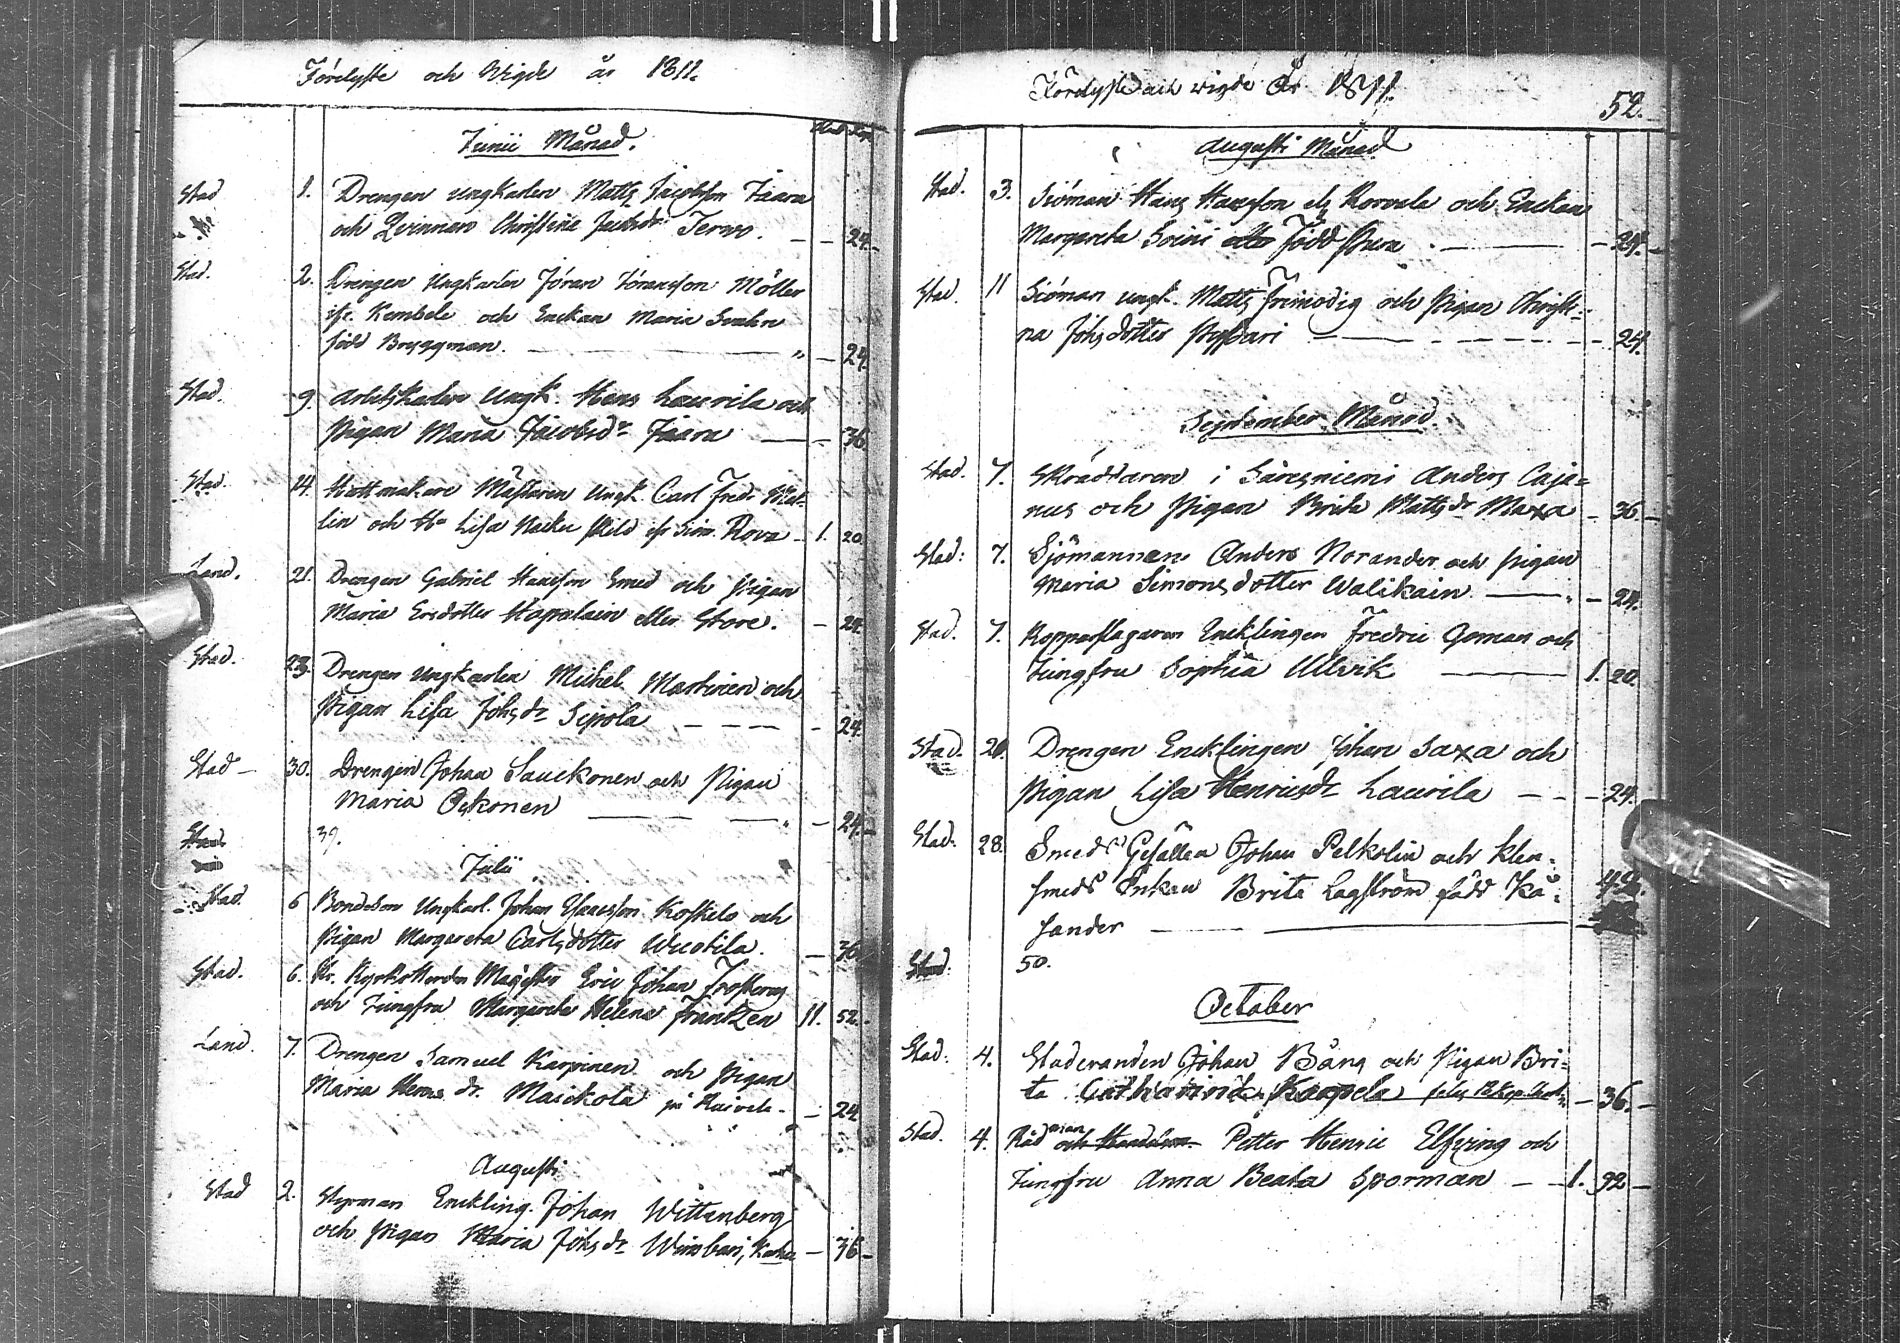 Förelyste och Wigde år 1811.
Junii Månad.
Stad 1. Drengen ungkarlen Matts Jacobsson Jaara
och Qvinnan Christina Jacobsdr Terwo. — 24.
Stad. 2. Drengen Ungkarlen Jöran Göransson Möller
ifr. Kembele och Enckan Maria Svahn
född Bryggman. — 24.
Stad. 9. Arbetskarlen Ungk. Hans Laurila och
Pigan Maria Jacobsdr Jaara — 36
Stad. 14. Hattmakare Mästaren Ungk. Carl Fredr
lin och Lisa ifr Rova — 1. 20.
Land. 21. Drengen Gabriel Hansson och Pigan
Maria Ersdotter Hapalain eller Store. — 24.
Stad. 23. Drengen Ungkarlen Michel Martinen och
Pigan Lisa Johsdr Sipola — 24.
Stad — 30. Drengen Johan Sauckonen och Pigan
Maria Ockonen — 24.
39.
Julii
Stad 6 Bondeson Ungkarl. Johan Koskelo och
Pigan Margareta Carlsdotter Wuotila. — 36
Stad. 6. Hr. Magister Eric Johan Frosterus
och Jungfru Margareta Helena Frantzen 11. 52.
Land. 7. Drengen Samuel Karpinen och Pigan
Maria Hansdr. Maickola på — 24
Augusti
Stad 2. Styrman Enckling Johan Wittenberg
och Pigan Maria Johsdr Wimbari, — 36 —
Förelyste och wigde År 1811.
52.
Augusti Månad
Stad. 3. Siöman Hans Hansson Korvala och Enckan
Margareta Soini född — 24. —
Stad. 11 Siöman ungk. Matts Frimodig och Pigan Christi=
na Johsdotter — 24.
September Månad.
Stad. 7. Skräddaren i Säresniemi Anders Caja=
nus och Pigan Brita Mattsdr Maxa — 36 —
Stad: 7. Sjömannen Anders Norander och Pigan
Maria Simonsdotter Walikain — 24.
Stad. 7. Kopparslagaren Encklingen Fredric Goman och
Jungfru Sophia Ullvik — 1. 20.
Stad. 20. Drengen Encklingen Johan Saxa och
Pigan Lisa Henricsdr Laurila — 24.
Stad. 28. Smeds Gesällen Johan Pelkolin och Klen=
smeds Enkan Brita Lagström född Kå=
sander — 44.
50.
October
Stad. 4. Staderanden Johan Bång och Pigan Bri=
ta Catharina Karpela — 36. —
Stad. 4. Rådman Petter Henric Elfving och
Jungfru Anna Beata Sporman — 1. 92 —